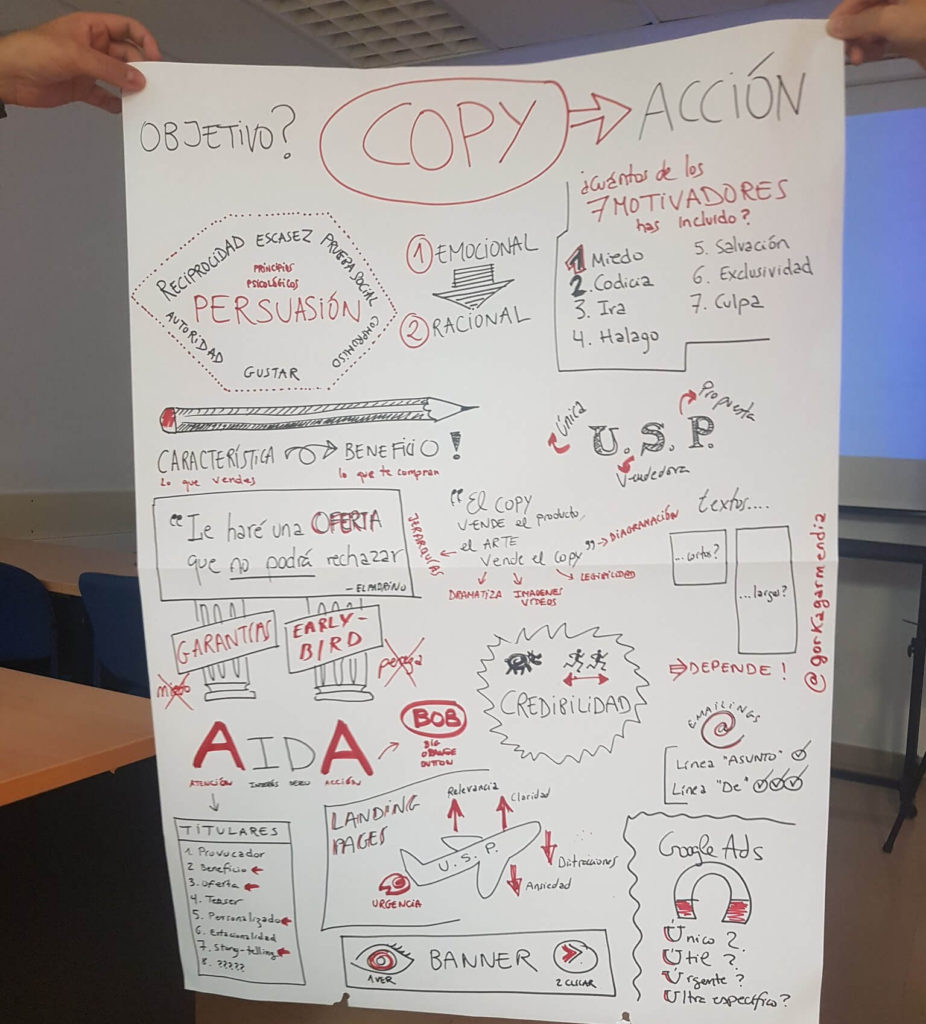 OBJETIVO?
COPY
ACCIÓN
RECIPROCIDAD ESCASEZ PRUEBA SOCIAL
COMPROMISO
GUSTAR
AUTORIDAD
PRINCIPIOS
PSICOLÓGICOS
PERSUASIÓN
1 EMOCIONAL
2 RACIONAL
¿Cuántos de los
7 MOTIVADORES
has incluido?
1 Miedo
2. Codicia
3. Ira
4. Halago
5. Salvación
6. Exclusividad
7. Culpa
CARACTERÍSTICA
Lo que vendes
BENEFICIO!
lo que te compran
Única
Propuesta
U. S. P.
Vendedora
"Le haré una OFERTA
que no podrá rechazar
- EL PADRINO
GARANTÍAS
miedo
EARLY-
BIRD
pereza
"El COPY
VENDE el producto,
el ARTE
Vende el Copy"
JERARQUÍAS
DIAGRAMACIÓN
DRAMATIZA
IMÁGENES
VÍDEOS
LEGIBILIDAD
textos....
...cortos?
...largos?
DEPENDE!
@gorkagarmendia
CREDIBILIDAD
AIDA
ATENCIÓN
INTERÉS
DESEO
ACCIÓN
BOB
BIG
ORANGE
BUTTON
EMAILINGS
@
Línea "ASUNTO"
Línea "De"
TITULARES
1. Provocador
2 Beneficio
3. Oferta
4. Teaser
5. Personalizado
6. Estacionalidad
7. Story-telling
8. ?????
LANDING
PAGES
Relevancia
Claridad
U.S.P.
Distracciones
Ansiedad
URGENCIA
BANNER
1 VER
2 CLICAR
Google Ads
Único?
Útil?
Urgente?
Ultra específico?